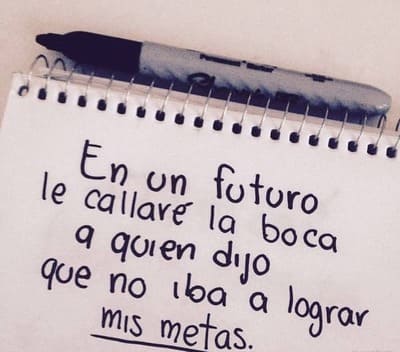 En un futuro
le callaré la boca
a quien dijo
que no iba a lograr
mis metas.